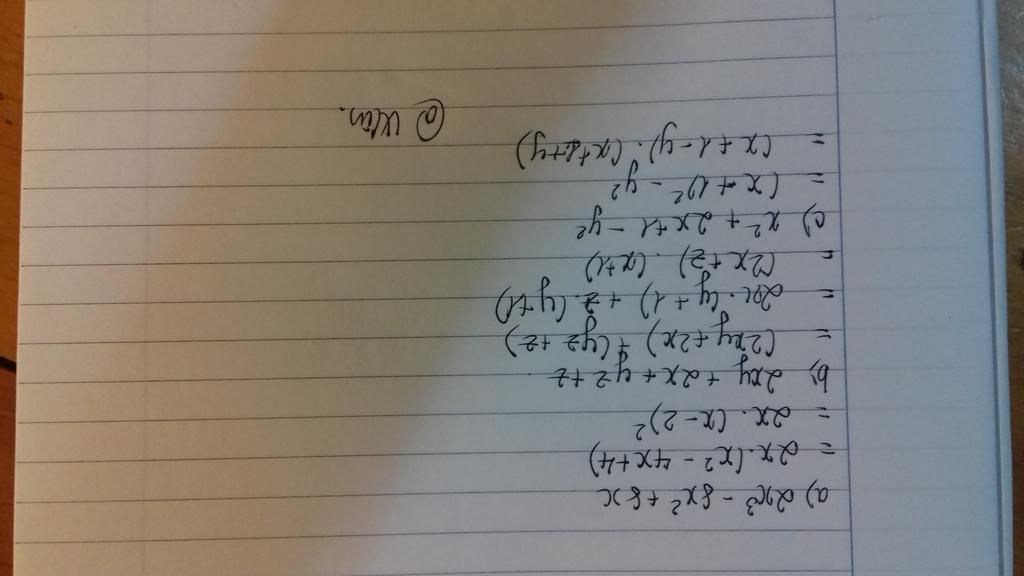 a) 2x³ - 8x² + 8x
= 2x.(x² - 4x + 4)
= 2x.(x - 2)²
b) 2xy + 2x + yz + z
= (2xy + 2x) + (yz + z)
= 2x.(y + 1) + z.(y + 1)
= (2x + z).(x + 1)
c) x² + 2x + 1 - y²
= (x + 1)² - y²
= (x + 1 - y).(x + 1 + y)